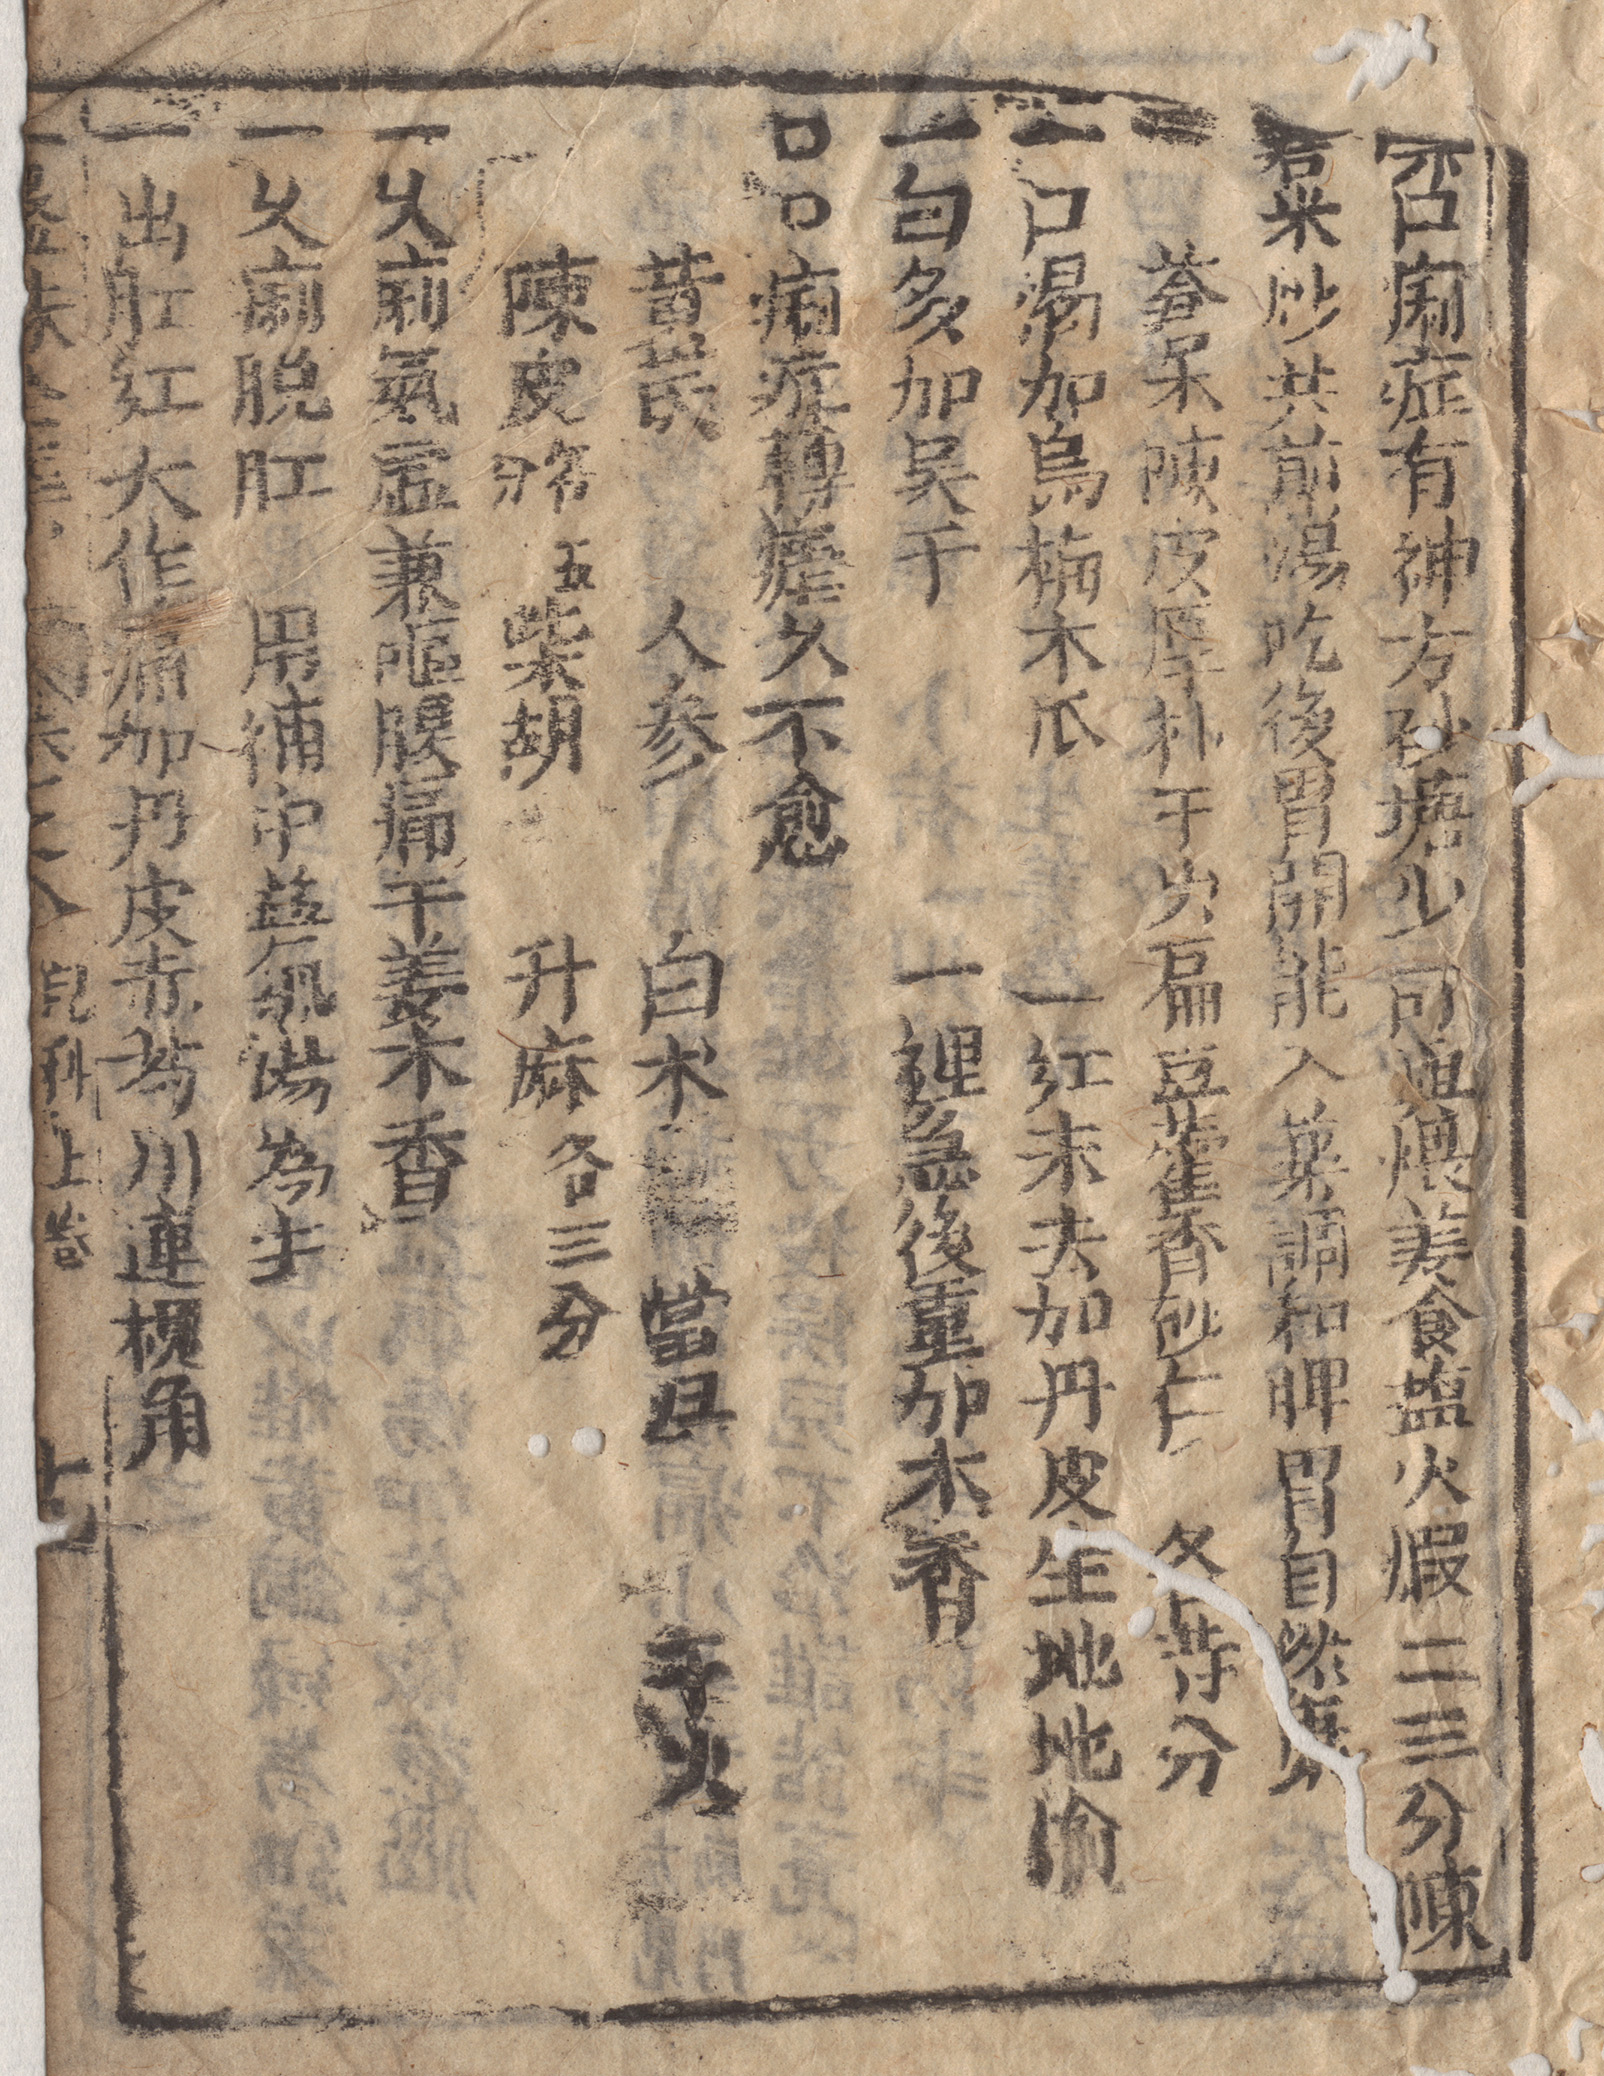 否口痢症有神方砂塘少司通煨姜食盐火煆二三分陳
粟米炒共煎湯吃後胃開能入藥調和脾胃自然
蒼术陳皮厚朴干火扁豆藿香砂仁 各等分
一口渴加烏梅木瓜 一紅未去加丹皮生地地愉
一白多加吴于 一裡急後重加木香
口口痢症轉瘧久不愈
黃芪 人参 白术 當归 干火
陳皮畧五分 柴胡 升麻各三分
一久痢氣虛兼嘔腹痛干姜木香
一久痢脱肛 用補中益氣湯為主
一出肛红大作痛加丹皮赤芍川連槐角
兒科上卷